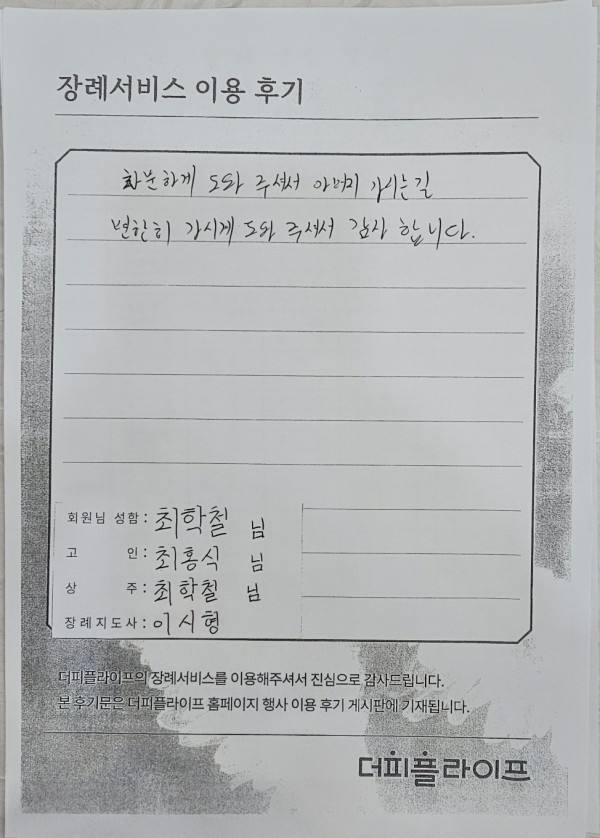 장례서비스 이용 후기
화분하게 도와 주셔서 아버지 가시는길
편안히 가시게 도와 주셔서 감사 합니다.
회원님 성함 : 최학철 님
고 인 : 최홍식 님
상 주 : 최학철 님
장례지도사 : 이시형
더피플라이프의 장례서비스를 이용해주셔서 진심으로 감사드립니다.
본 후기문은 더피플라이프 홈페이지 행사 이용 후기 게시판에 기재됩니다.
더피플라이프